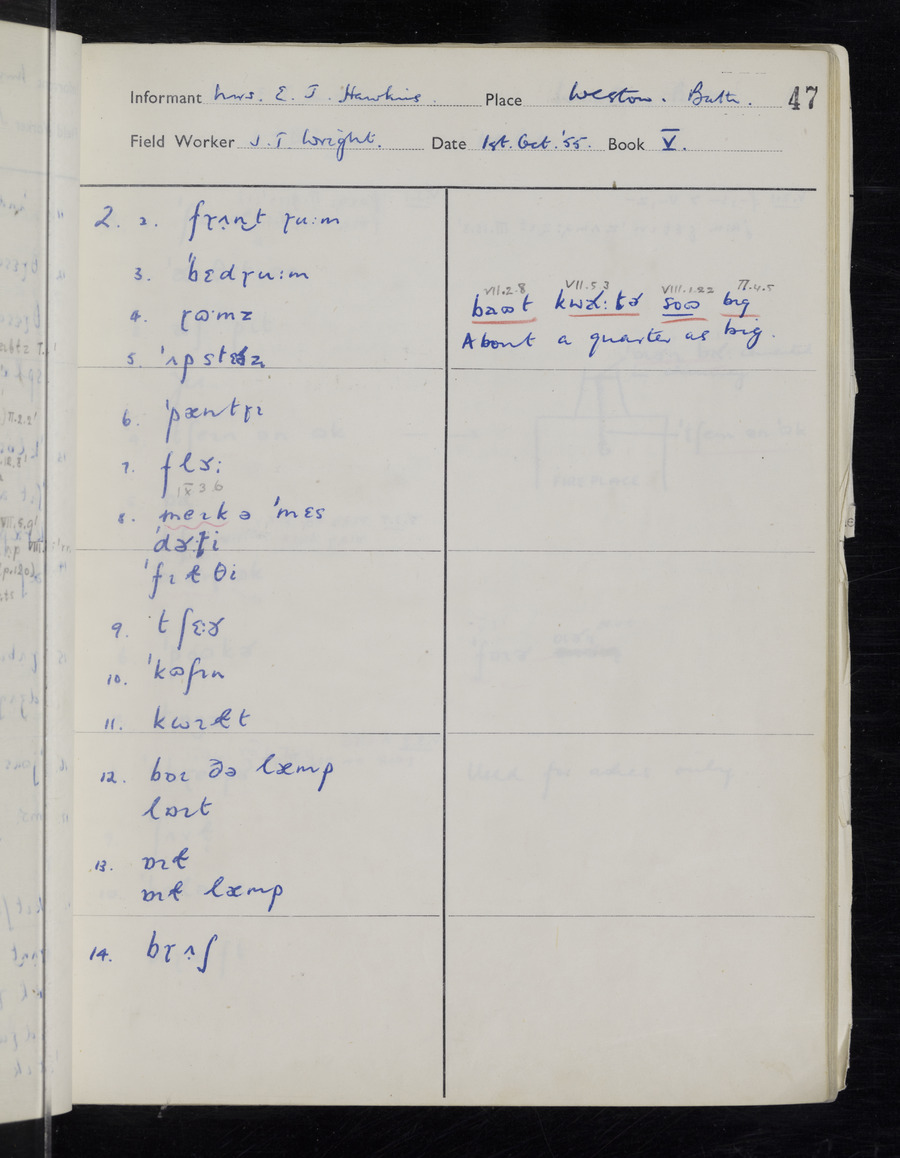 Informant Mrs. E. J. Hawkins. Place Weston. Bath. 47
Field Worker J.T. Wright. Date 1st. Oct. '55. Book V.
2. 2. fɽʌ̣ɳt ɽu:m
3. 'bɛdɽu:m
4. ɽʊ·mz
5. 'ʌpstɛəz
6. 'pæntɽɪ
7. flɤ:
IX 3 6
8. meɪk ə 'mɛs
'dɤ:ʈi
'fɪɫθi
9. tʃɛ:ɤ
10. 'kʊʃɪn
11. kwɪɫt
12. bɒɪ ðə læmp
lɒɪt
13. ɒɪɫ
ɒɪɫ læmp
14. bɽʌ̣ʃ
VII.2.8 VII.5.3 VIII.1.22 II.4.5
bəʊt kwɤ:tɤ soʊ bɪg
About a quarter as big.